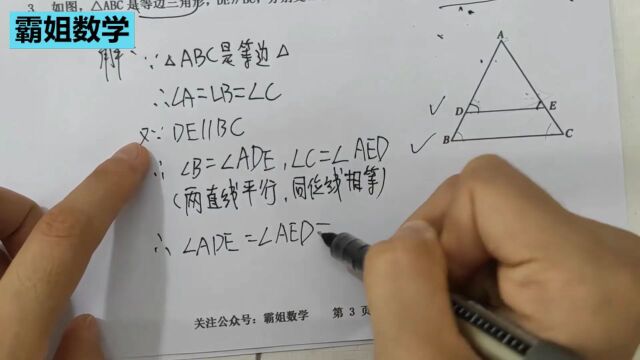 3. 如图，△ABC是等边三角形，DE∥BC，分别交
霸姐数学
解：∵△ABC是等边△
∴∠A=∠B=∠C
又∵DE∥BC
∴∠B=∠ADE，∠C=∠AED
（两直线平行，同位线相等）
∴∠ADE=∠AED=
A
D
E
B
C
关注公众号：霸姐数学 第 3 页